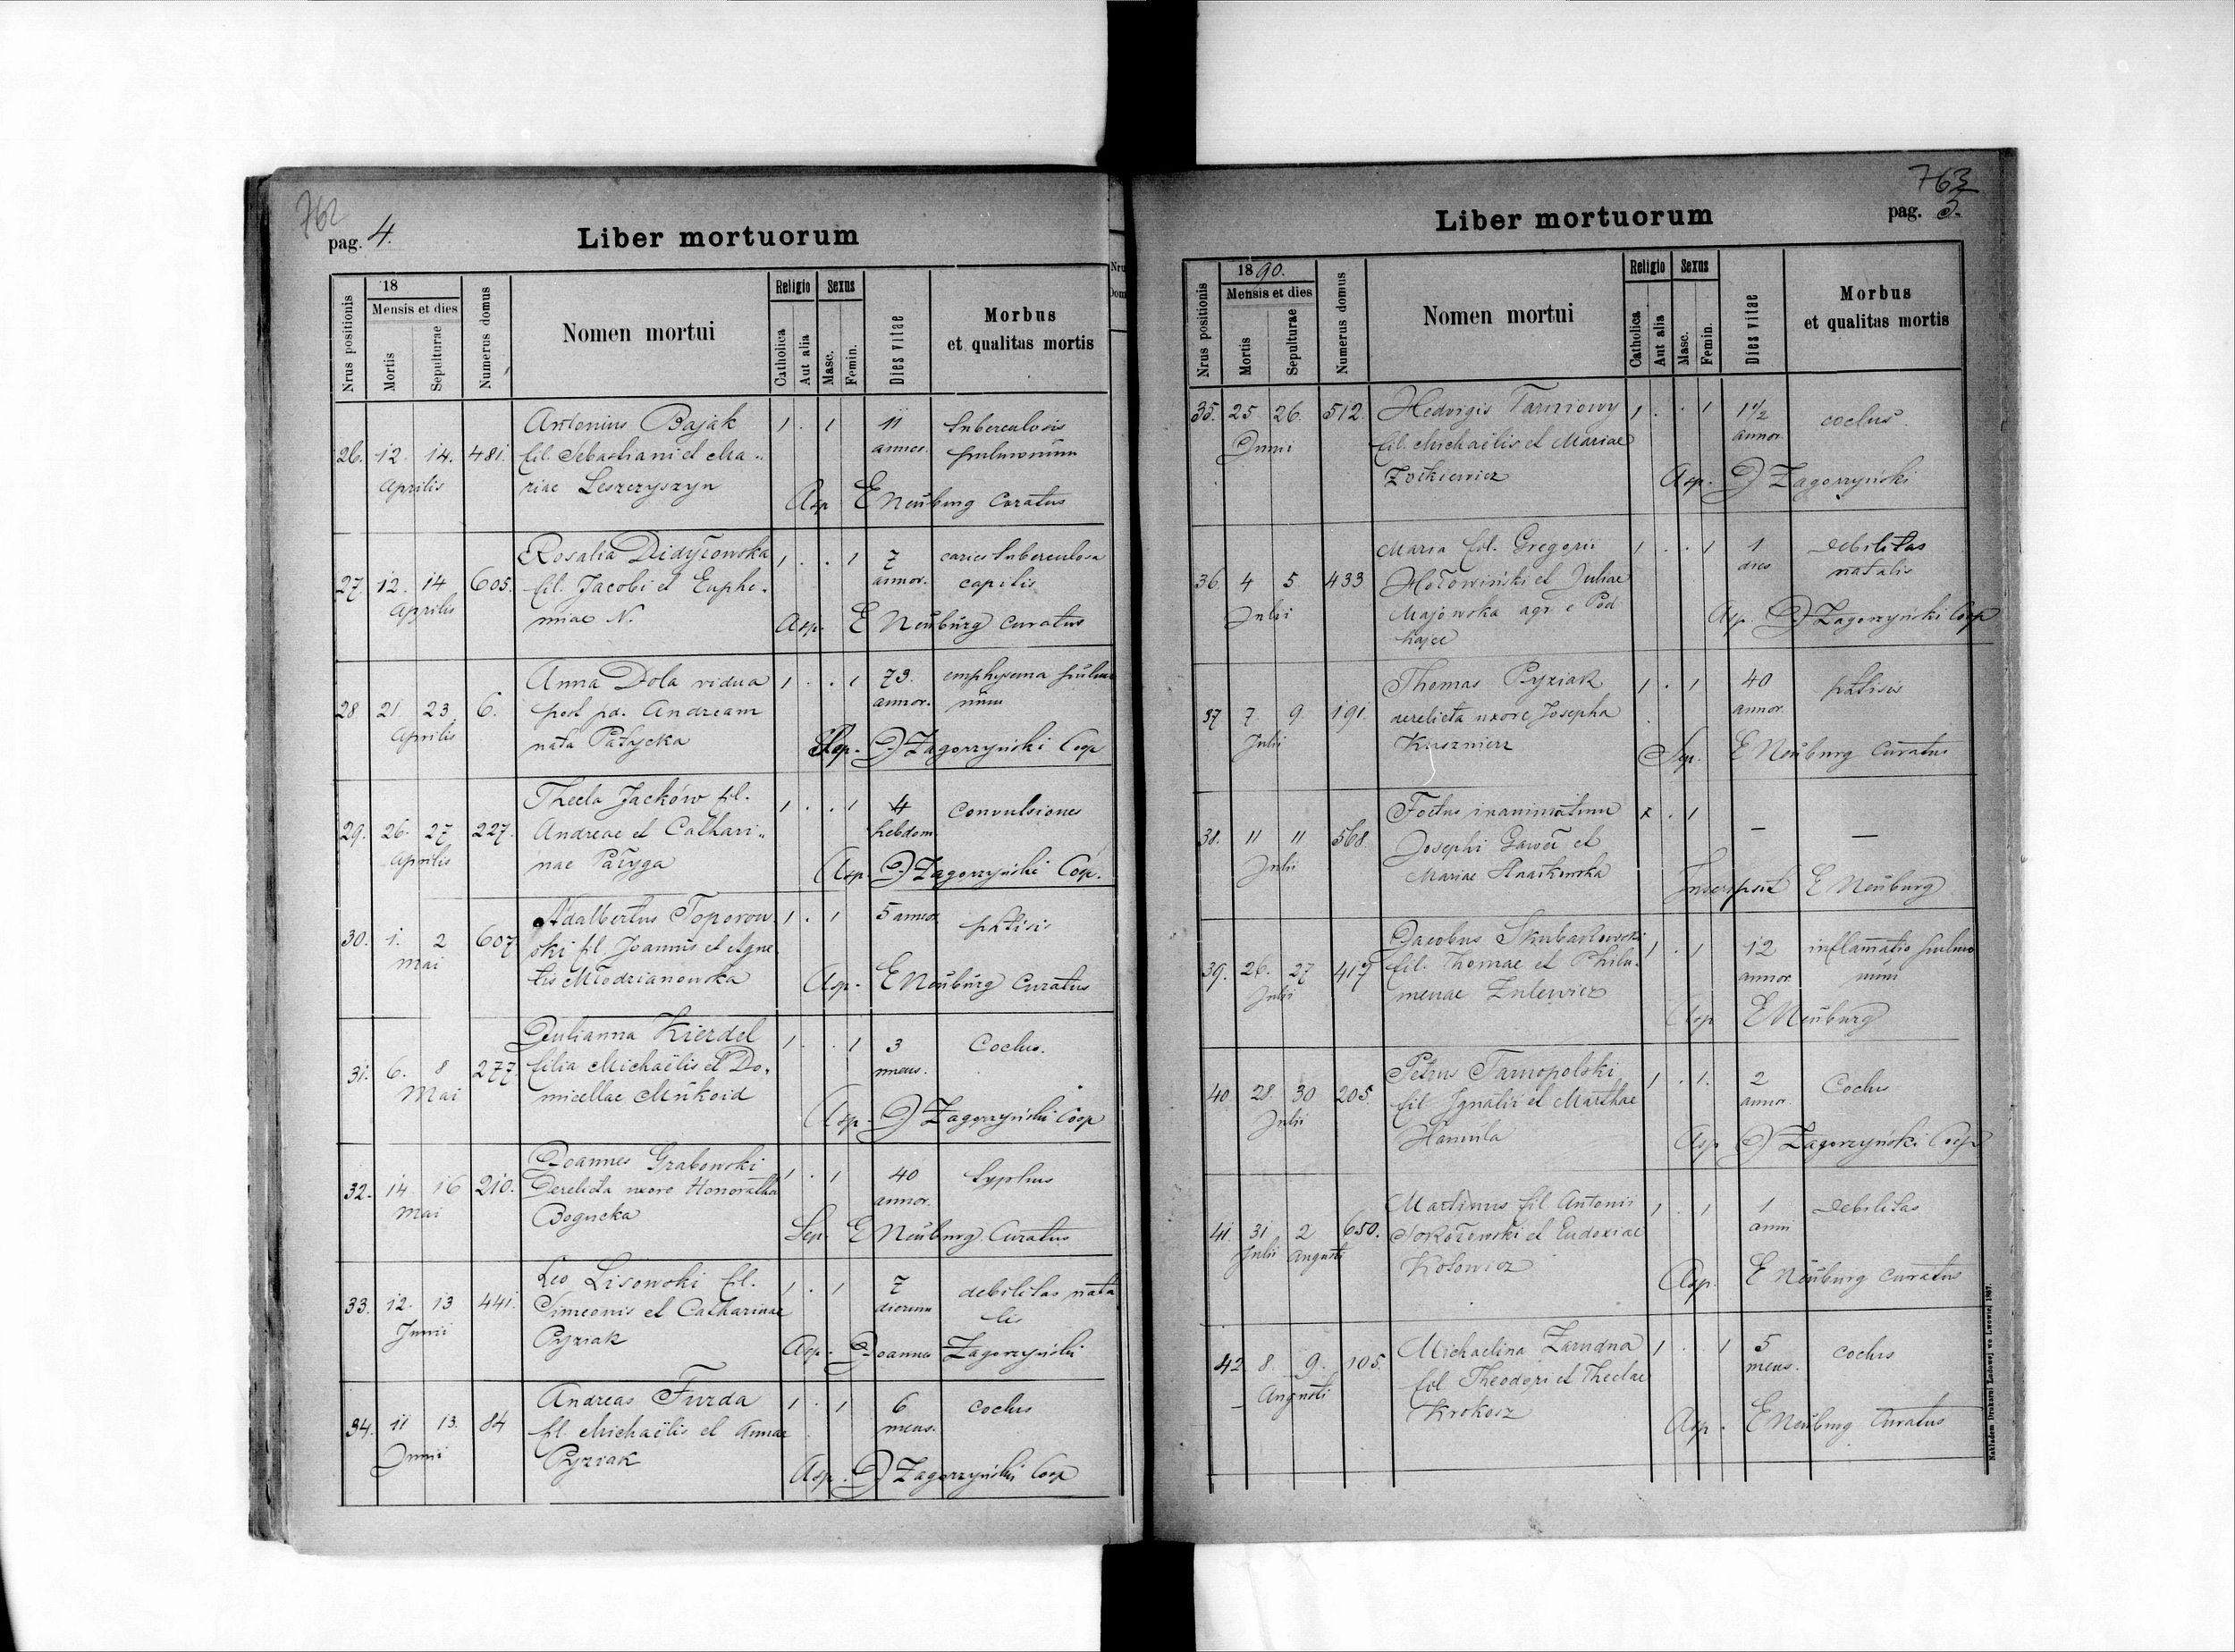 762
pag. 4.
Liber mortuorum
Nrus positionis
18
Mensis et dies
Mortis
Sepulturae
Numerus domus
Nomen mortui
Religio
Catholica
Aut alia
Sexus
Masc.
Femin.
Dies vitae
Morbus
et qualitas mortis
26. 12. 14. 481. Antonius Bajak 1 . 1 11 tuberculosis
Aprilis fil. Sebastiani et Ma- annor. pulmonum
riae Leszczyszyn Asp E Neüburg Curatus
27. 12. 14 605. Rosalia Didyłowska 1 . . 1 7 caries tuberculosa
Aprilis fil. Jacobi et Euphe- annor. capitis
miae N. Asp. E Neüburg curatus
28 21. 23. 6. Anna Dola vidua 1 . . 1 73. emphysema pulmo
Aprilis post pd. Andream annor. num
nata Patycka Sep. J Zagorzyński Coop
29. 26. 27 227. Thecla Jacków fil. 1 . . 1 4 convulsiones
Aprilis Andreae et Cathari- hebdom.
nae Pałyga Asp. J Zagorzyński Coop.
30. 1. 2 607 Adalbertus Toporow 1 . 1 5 annor. phtisis
Mai ski fil. Joannis et Agne
tis Młodzianowska Asp. E Neüburg Curatus
31. 6. 8 277. Julianna Kierdel 1 . . 1 3 Coclus.
Mai filia Michaëlis et Do- mens.
micellae Mükoid Asp. J Zagorzyński Coop
32. 14. 16 210. Joannes Grabowski 1 . 1 40 typhus
Mai Derelicta uxore Honoratha annor.
Bogucka Sep. E Neüburg Curatus
33. 12. 13 441. Leo Lisowski fil. 1 . 1 7 debilitas nata
Junii Simeonis et Catharinae dierum lis
Pyziak Asp. Joannes Zagorzyński
34. 11 13. 84 Andreas Furda 1 . 1 6 coclus
Junii fil. Michaëlis et Annae mens.
Pyziak Asp. J Zagorzyński Coop
Nru
Dom
763
pag. 5.
Liber mortuorum
Nrus positionis
1890.
Mensis et dies
Mortis
Sepulturae
Numerus domus
Nomen mortui
Religio
Catholica
Aut alia
Sexus
Masc.
Femin.
Dies vitae
Morbus
et qualitas mortis
35. 25 26. 512. Hedvigis Tarniowy 1 . . 1 1 1/2 coclus
Junii fil. Michaëlis et Mariae annor.
Zołkiewicz Asp. J Zagorzyński
36. 4 5. 433 Maria fil. Gregorii 1 . . 1 1 debilitas
Julii Hołowiński et Juliae dies natalis
Majowska agr. e Pod Asp. J Zagorzyński Coop
hajce
37 7. 9. 191. Thomas Pyziak 1 . 1 40 phtisis
Julii derelicta uxore Josepha annor.
Kusznierz Sep. E Neüburg Curatus
38. 11 11 568. Foetus inanimatum x . 1 — —
Julii Josephi Gaweł et
Mariae Inscripsit E Neüburg
39. 26. 27 417 Jacobus Skubarlowski 1 . 1 12 inflamatio pulmo
Julii fil. Thomae et Philu- annor. num
menae Zulewicz Asp E Neüburg
40 28. 30 205. Petrus Tarnopolski 1 . 1. 2 Coclus
Julii fil Ignatii et Marthae annor.
Hamula Asp J Zagorzyński Coop
41. 31 2 650. Martinus fil Antonii 1 . 1 1 debilitas
Julii Augusti Sokołowski et Eudoxiae anni
Kotowicz Asp. E Neüburg curatus
42 8. 9. 105. Michaelina Zarudna 1 . 1 5 coclus
Augusti fil Theodori et Theclae mens.
Krokosz Asp. E Neüburg Curatus
Nakładem Drukarni Ludowej we Lwowie 1887.